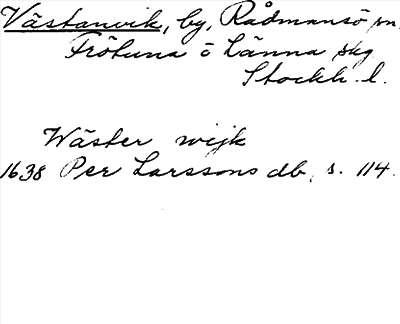 Västanvik, by, Rådmansö sn.
Frötuna o Länna skg
Stockh. l.
Wäster wijk
1638 Per Larssons db, s. 114.